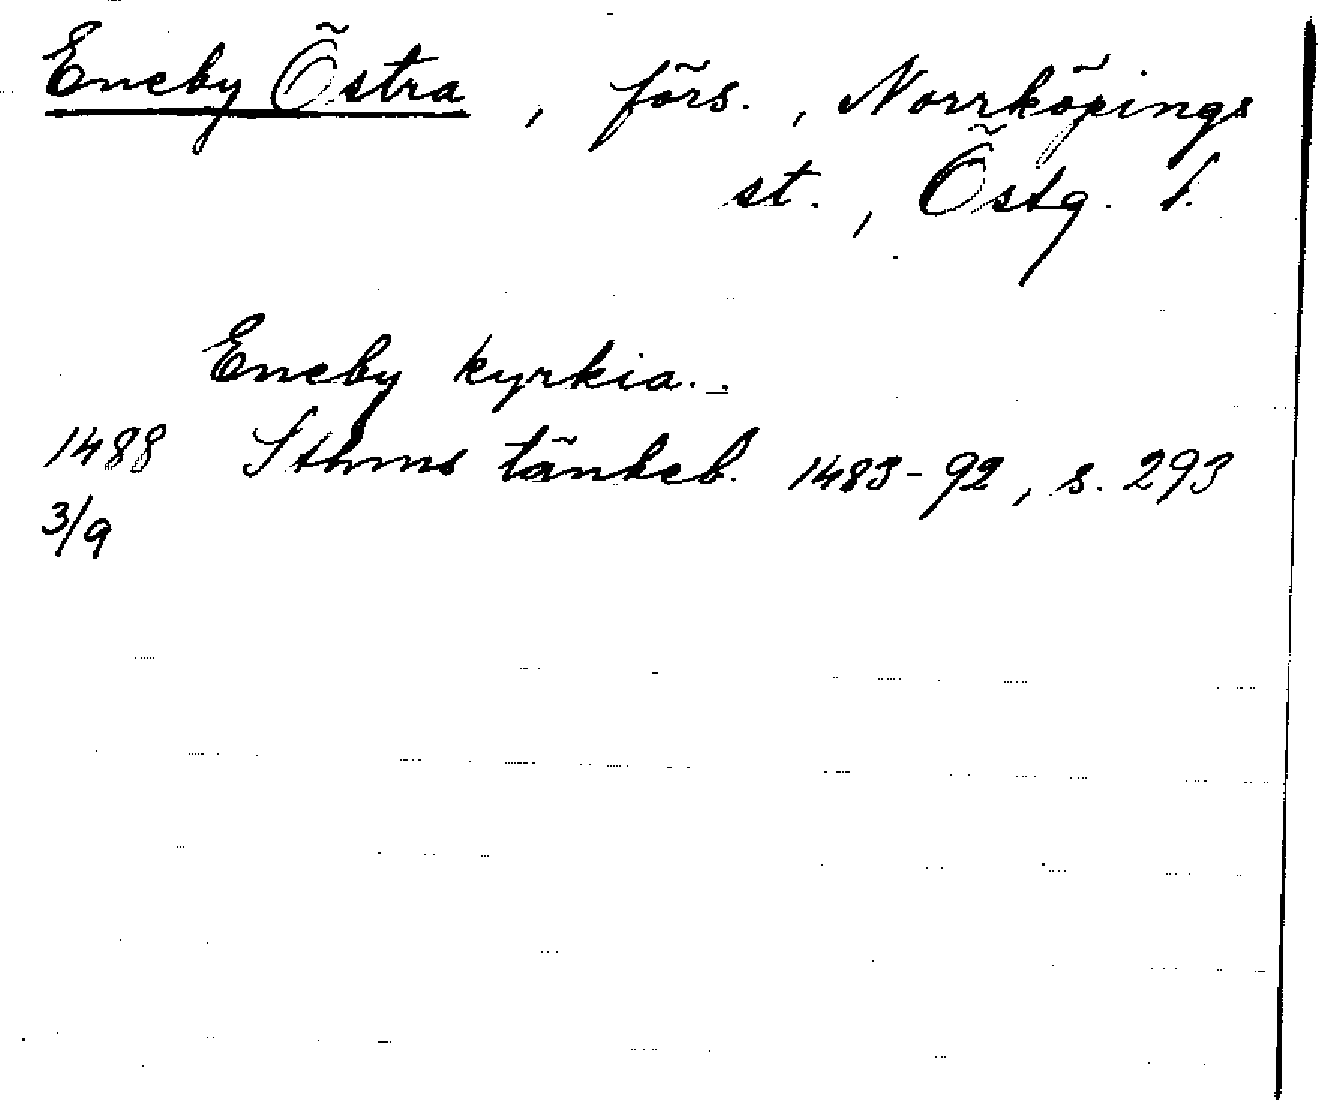 Eneby Östra, förs., Norrköpings
st., Östg. l.
Eneby kyrkia.-
1488 Sthms tänkeb. 1483-92, s. 293
3/9